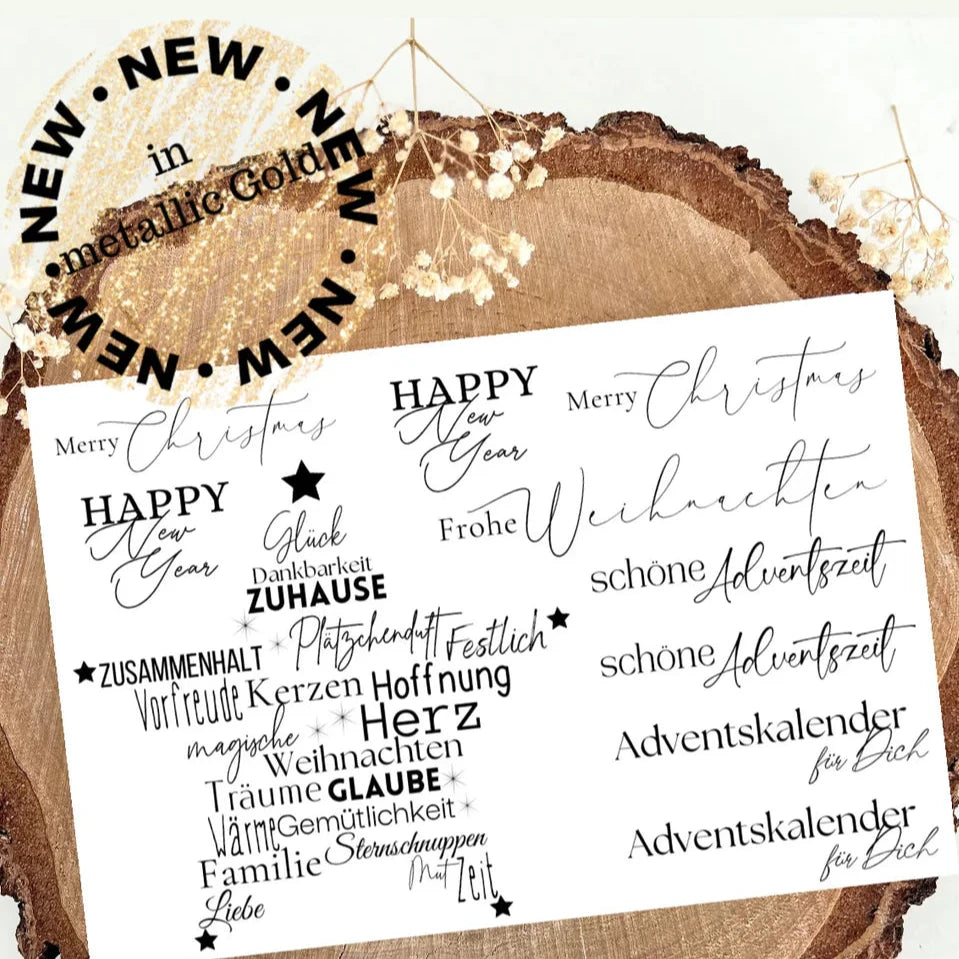 NEW • NEW • NEW • NEW • NEW • NEW • NEW •
in
metallic Gold
Merry Christmas
HAPPY
New
Year
Glück
Dankbarkeit
ZUHAUSE
Plätzchenduft Festlich
ZUSAMMENHALT
Vorfreude Kerzen Hoffnung
magische Herz
Weihnachten
Träume GLAUBE
Wärme Gemütlichkeit
Familie Sternschnuppen
Mut Zeit
Liebe
HAPPY
New
Year
Merry Christmas
Frohe Weihnachten
schöne Adventszeit
schöne Adventszeit
Adventskalender
für Dich
Adventskalender
für Dich